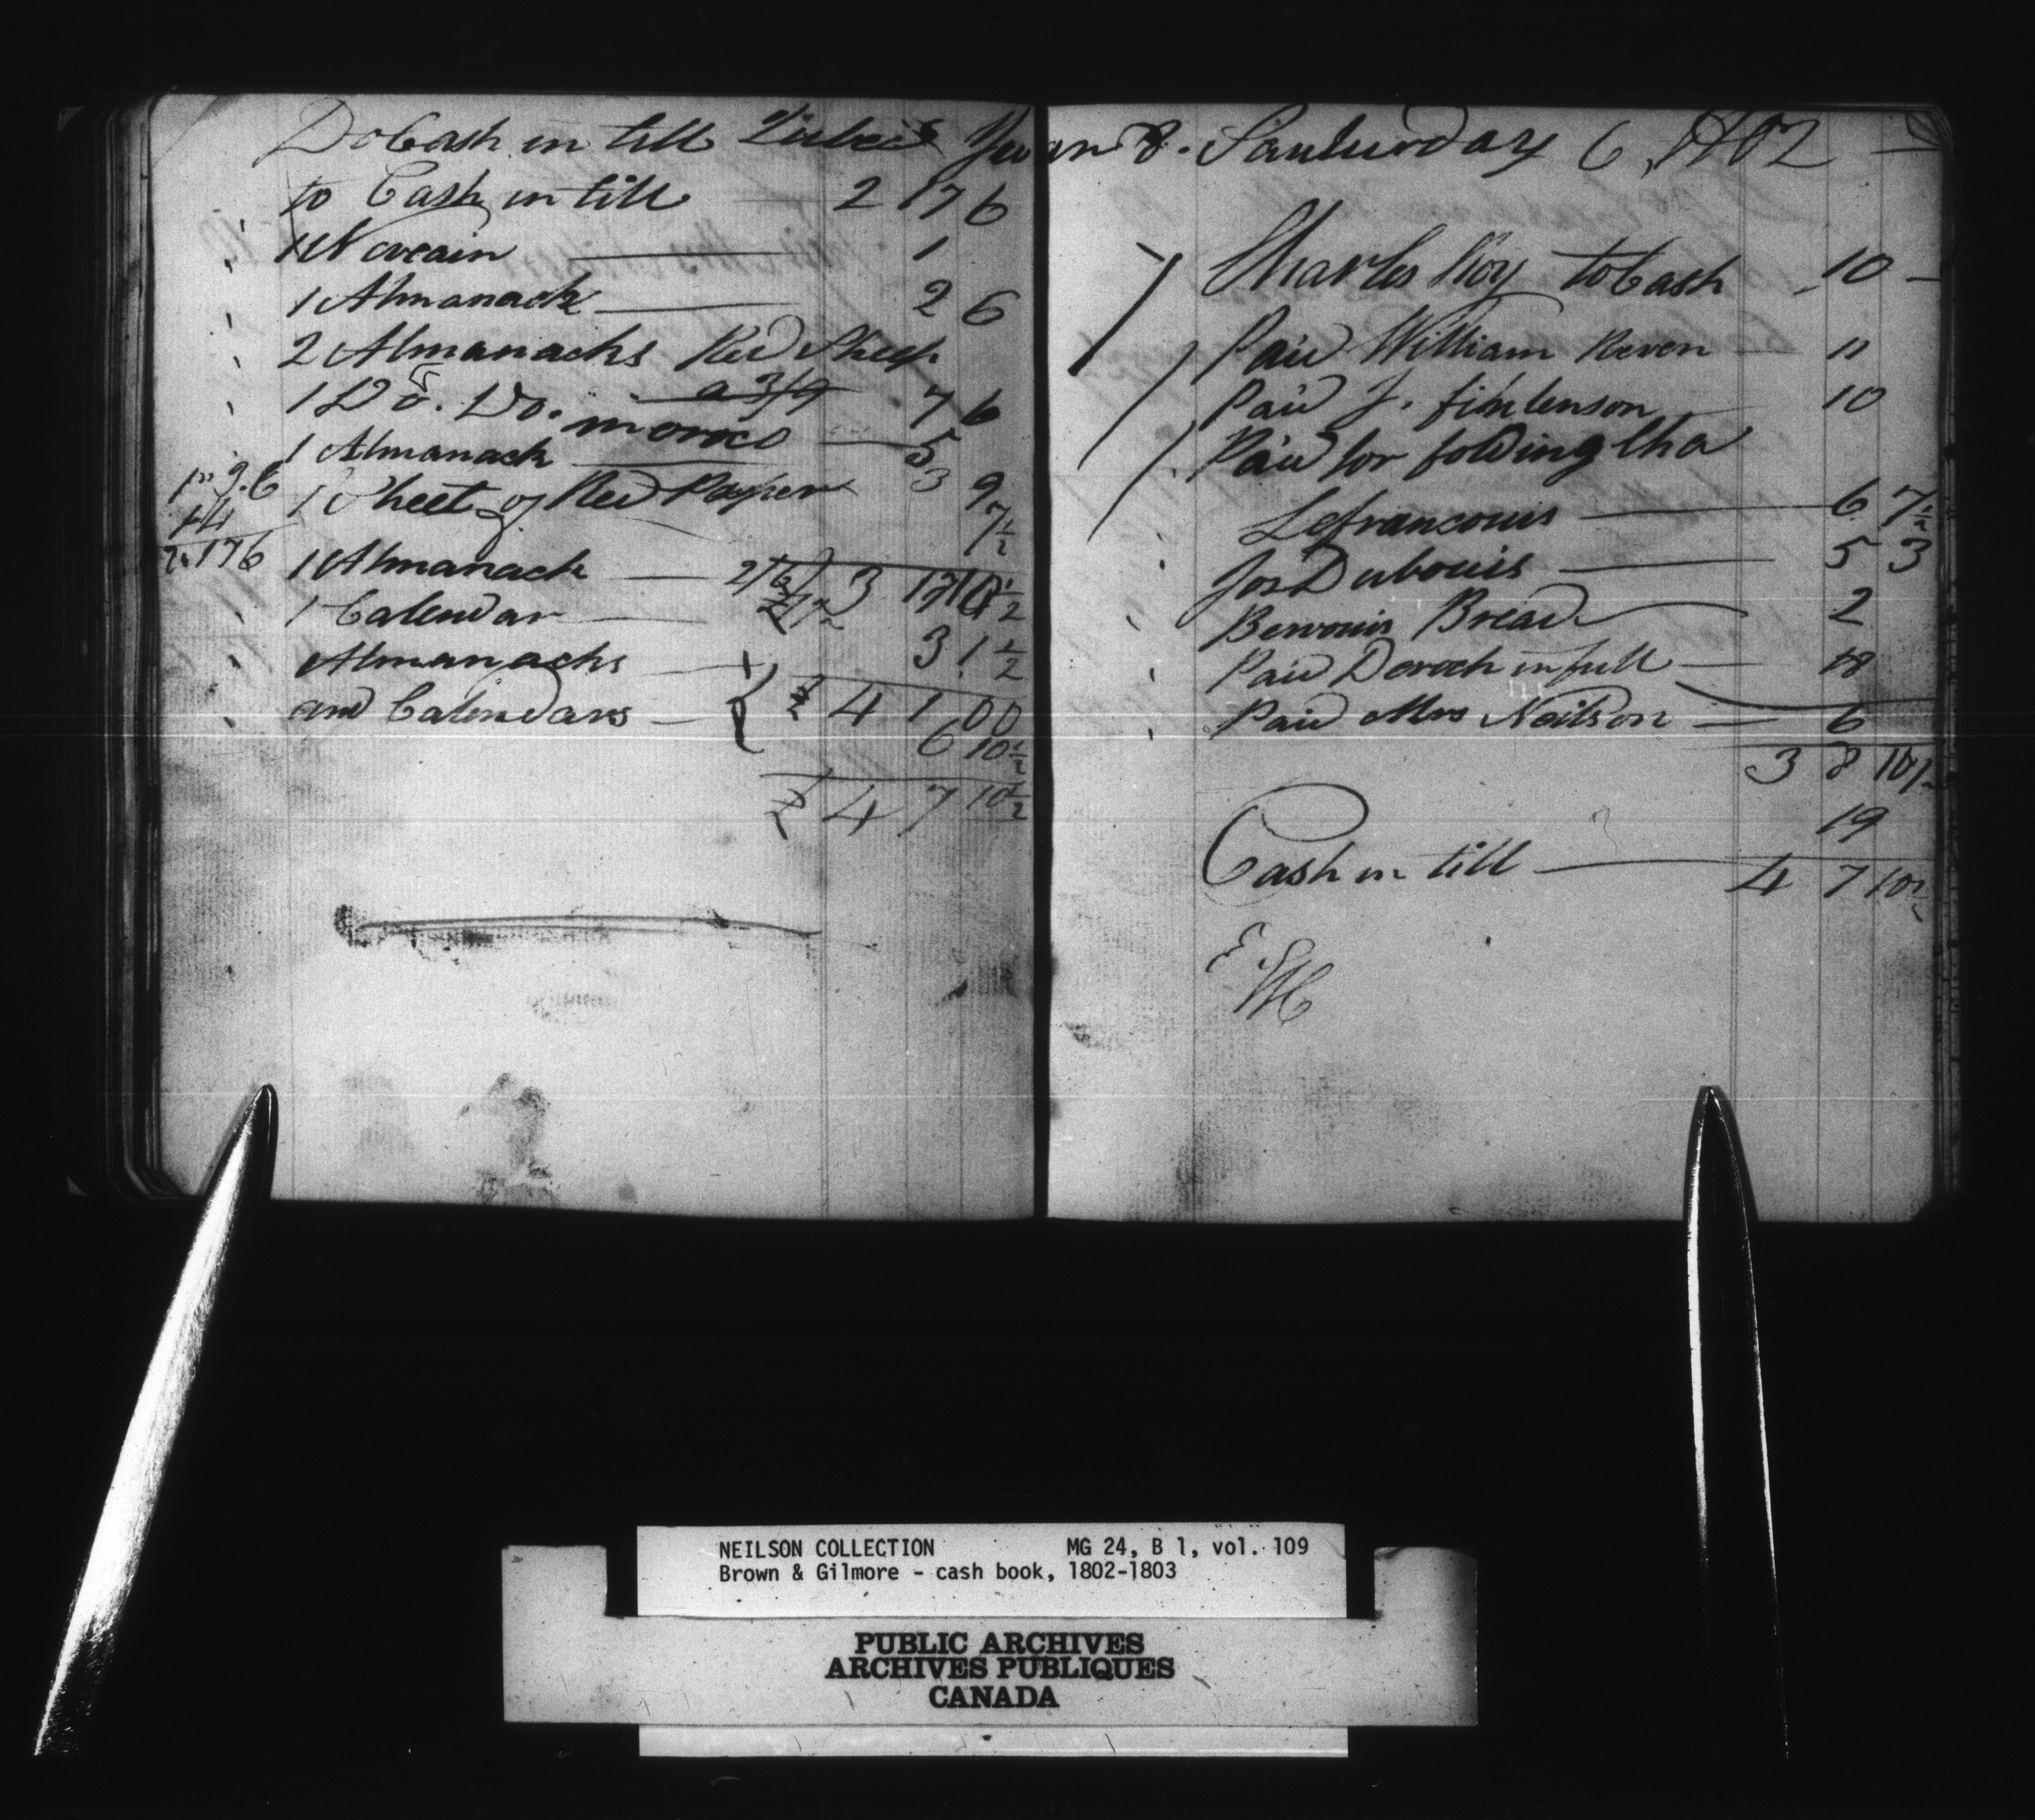 Do Cash in till Quebec
to Cash in till 2 17 6
1 Noveain 1
1 Almanack 2 6
2 Almanachs Red Sheep
a 3/9 7 6
1 Do. Do. moroco 5
1 Almanack 3 9
1 Sheet of Red Paper 7 1/2
1 " 9. 6
1 4
2 " 17 6
3 17 10 1/2
1 Almanack 2/6
1 Calendar 7 1/2 3 1 1/2
Almanachs
and Calendars 4 1 00
6 10 1/2
4 7 10 1/2
Saturday 6, 1802
Charles Roy to Cash 10 -
Paid William Reven 11
Paid J. finlenson 10
Paid for folding tha
Lefrancouis 6 7 1/2
Jos Dubouis 5 3
Bervouis Bread 2
Paid Deroch in full 18
Paid Mrs Neilson 6
3 8 10 1/2
19
Cash in till 4 7 10 1/2
NEILSON COLLECTION MG 24, B 1, vol. 109
Brown & Gilmore - cash book, 1802-1803
PUBLIC ARCHIVES
ARCHIVES PUBLIQUES
CANADA